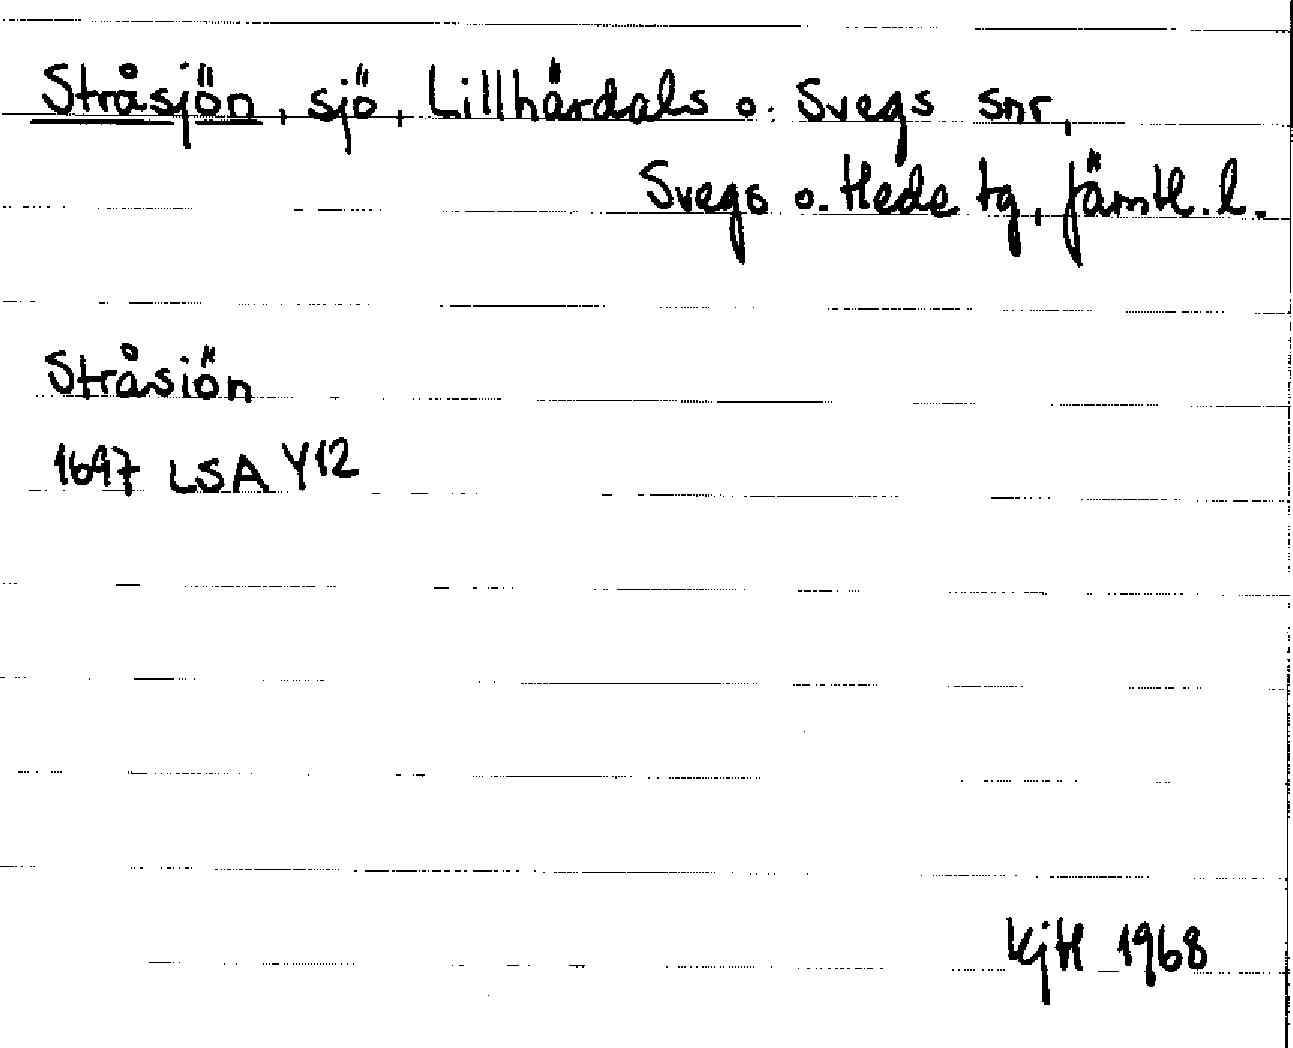 Stråsjön, sjö, Lillhärdals o. Svegs snr,
Svegs o. Hede tg, Jämtl. l.
Stråsiön
1697 LSA Y12
KjH 1968